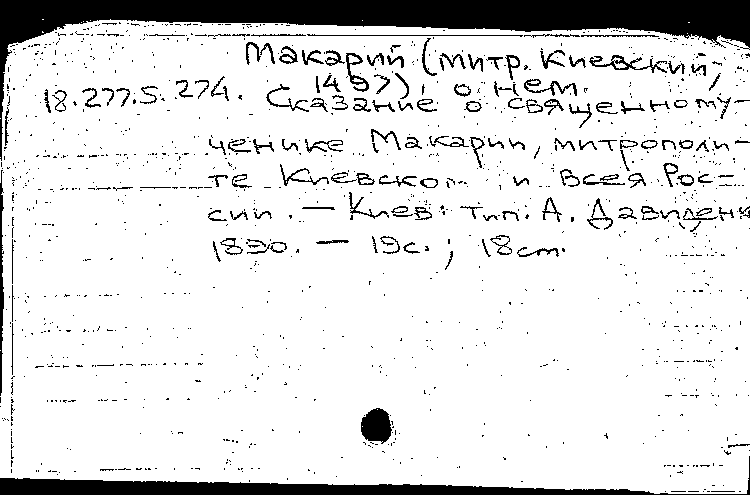 Макарий (митр. Киевский;
- 1497), о нем.
18.277.5.274. Сказание о священному-
ченике Макарии, митрополи-
те Киевском и всея Рос=
сии. — Киев: тип. А. Давиденк
1890. — 19с.; 18cm.